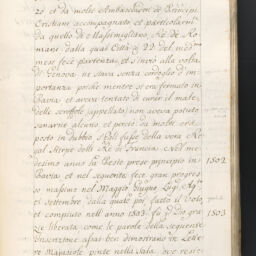 20 et da molte Ambascierie de Principi
Cristiani accompagnato, et particolarm.te
da quello di Massimigliano Rè de Ro-
mani dalla qual Città a 22 del med.mo
mese fece partenza, et s'inviò alla volta
di Genova ne stava senza cordoglio d'im-
portanza poiche mentre si era fermato in
Pavia et aveva tentato di curir il male
delle scroffole (appellato) non aveva potuto
sanarne alcuno, et perciò da molti era
posto in dubbio s'Egli fusse della vera Re-
gal Stirpe delli Rè di Francia. Nell med-
desimo anno la Peste prese principio in
Pavia et nel seguente fece gran progres-
so massime nel Maggio Giugno Lug.o Ag.to
et Settembre dalla qual poi fatto il Voto
et compiuto nell'anno 1503. fu p Dio gra-
zia liberata, come le parole della seguente
Inscrizione assai ben dimostrano in Lette-
re Majuscole, poste nella Sala, ove resie-
1502
1503